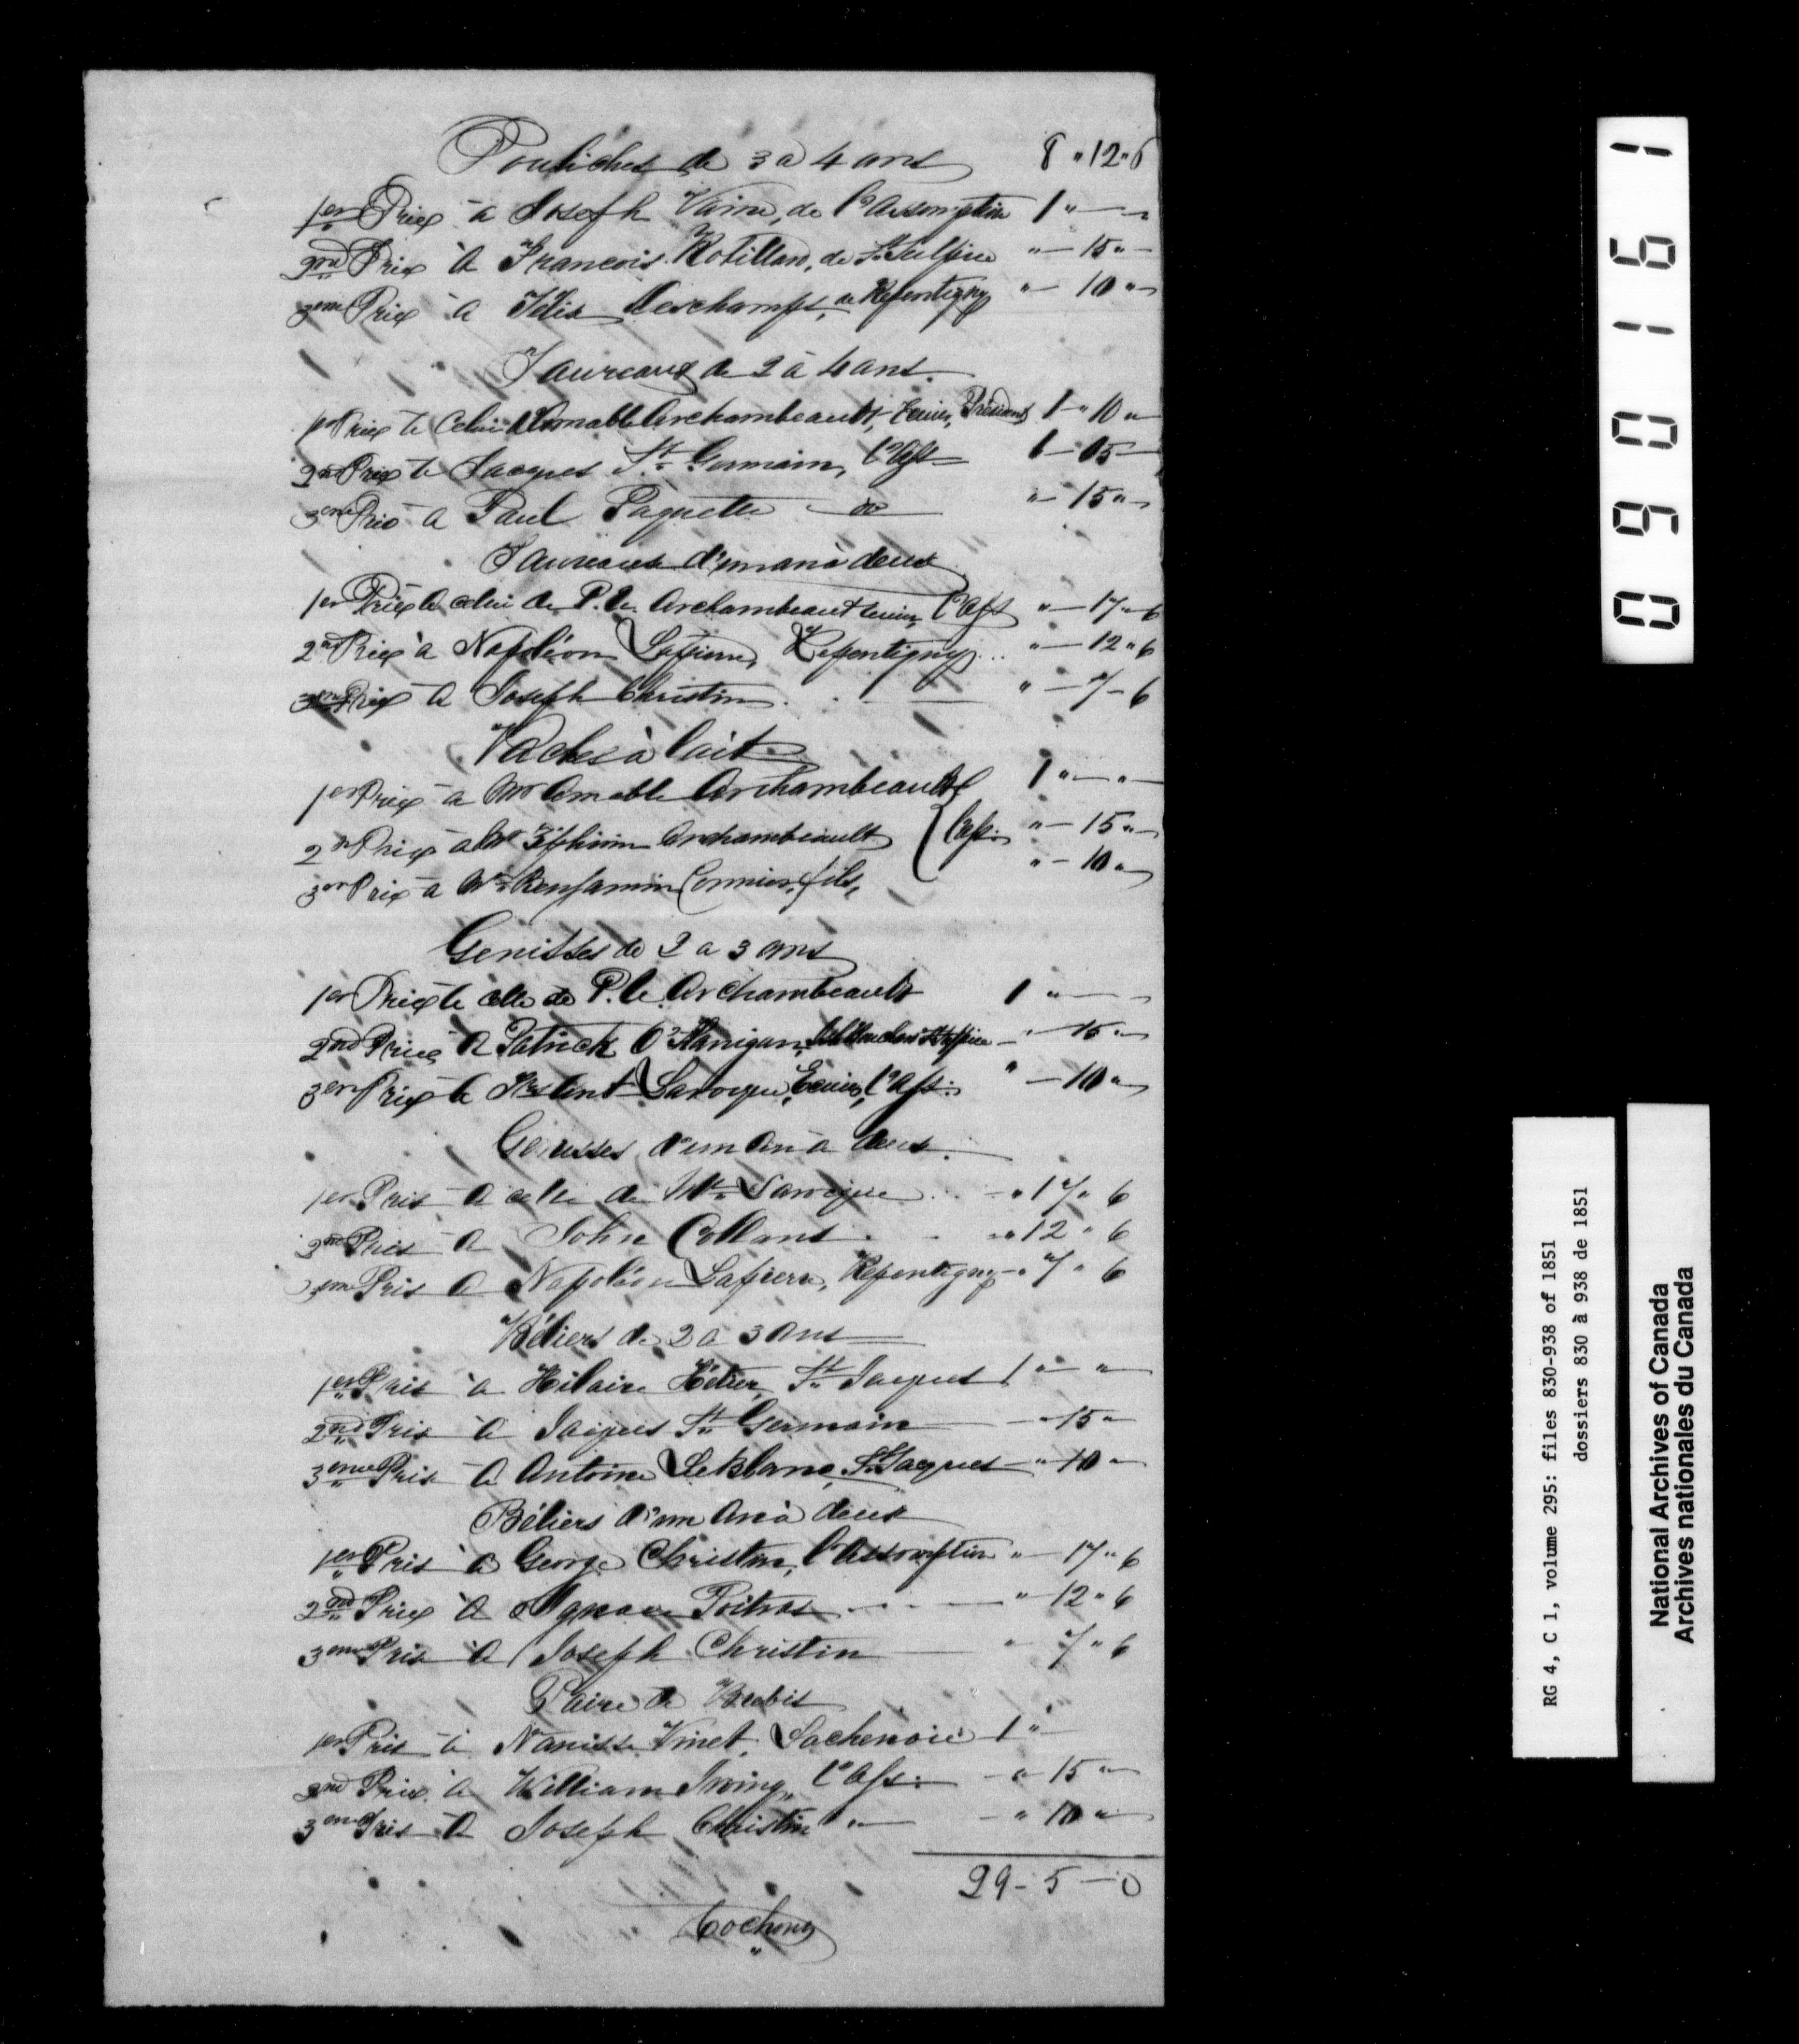 Pouliches de 3 a 4 ans 8 " 12 " 6
1er Prix à Joseph Vaine, de l'Assomption 1 " — "
2nd Prix à Francois Robillard, de St Sulpice " — 15 " —
3eme Prix à Félix Deschamps, de Repentigny " — 10 " —
Taureaux de 2 à 4 ans.
1er Prix à Celui d'Amable Archambeault, Ecuier, Président 1 — " 10 "
2nd Prix à Jacques St Germain, l'Ass 1 — 05 —
3eme Prix à Paul Paquette — do — " — 15 " —
Taureaux d'un an à deux
1er Prix à celui de P. U. Archambeault Ecuier, l'Ass " — 17 " 6
2nd Prix à Napoléon Lapierre, Repentigny " — 12 " 6
3eme Prix à Joseph Christin " — 7 — 6
Vaches à lait
1er Prix à Mr Amable Archambeault 1 " — " —
2nd Prix à Mr Zéphirin Archambeault } l'Ass: " — 15 " —
3eme Prix à Mr Benjamin Cormier, fils, " — 10 " —
Genisses de 2 a 3 ans
1er Prix à celle de P. U. Archambeault 1 " — —
2nd Prix à Patrick O'Flanigan, St Sulpice " 15 " —
3eme Prix à Laroque, Ecuier, l'Ass: " — 10 " —
Genisses d'un an à deux.
1er Prix à celle de Mr Laroque — " 17 " 6
2nd Prix à John Collans — " 12 " 6
3eme Prix à Napoléon Lapierre, Repentigny — " 7 " 6
Béliers de 2 a 3 ans
1er Prix à Hilaire Hétier, St Jacques 1 " — "
2nd Prix à Jacques St Germain — " 15 "
3eme Prix à Antoine LeBlanc, St Jacques — " 10 "
Béliers d'un An à deux
1er Prix à George Christin, l'Assomption " — 17 " 6
2nd Prix à Ignace Poitras " 12 " 6
3eme Prix à Joseph Christin " 7 " 6
Paire de Brebis
1er Prix à Narcisse Vinet, Lachenaie 1 " —
2nd Prix à William Irving, l'Ass: — " 15 " —
3eme Prix à Joseph Christin " — " 10 " —
29 — 5 — 0
090161
RG 4, C 1, volume 295: files 830-938 of 1851
dossiers 830 à 938 de 1851
National Archives of Canada
Archives nationales du Canada